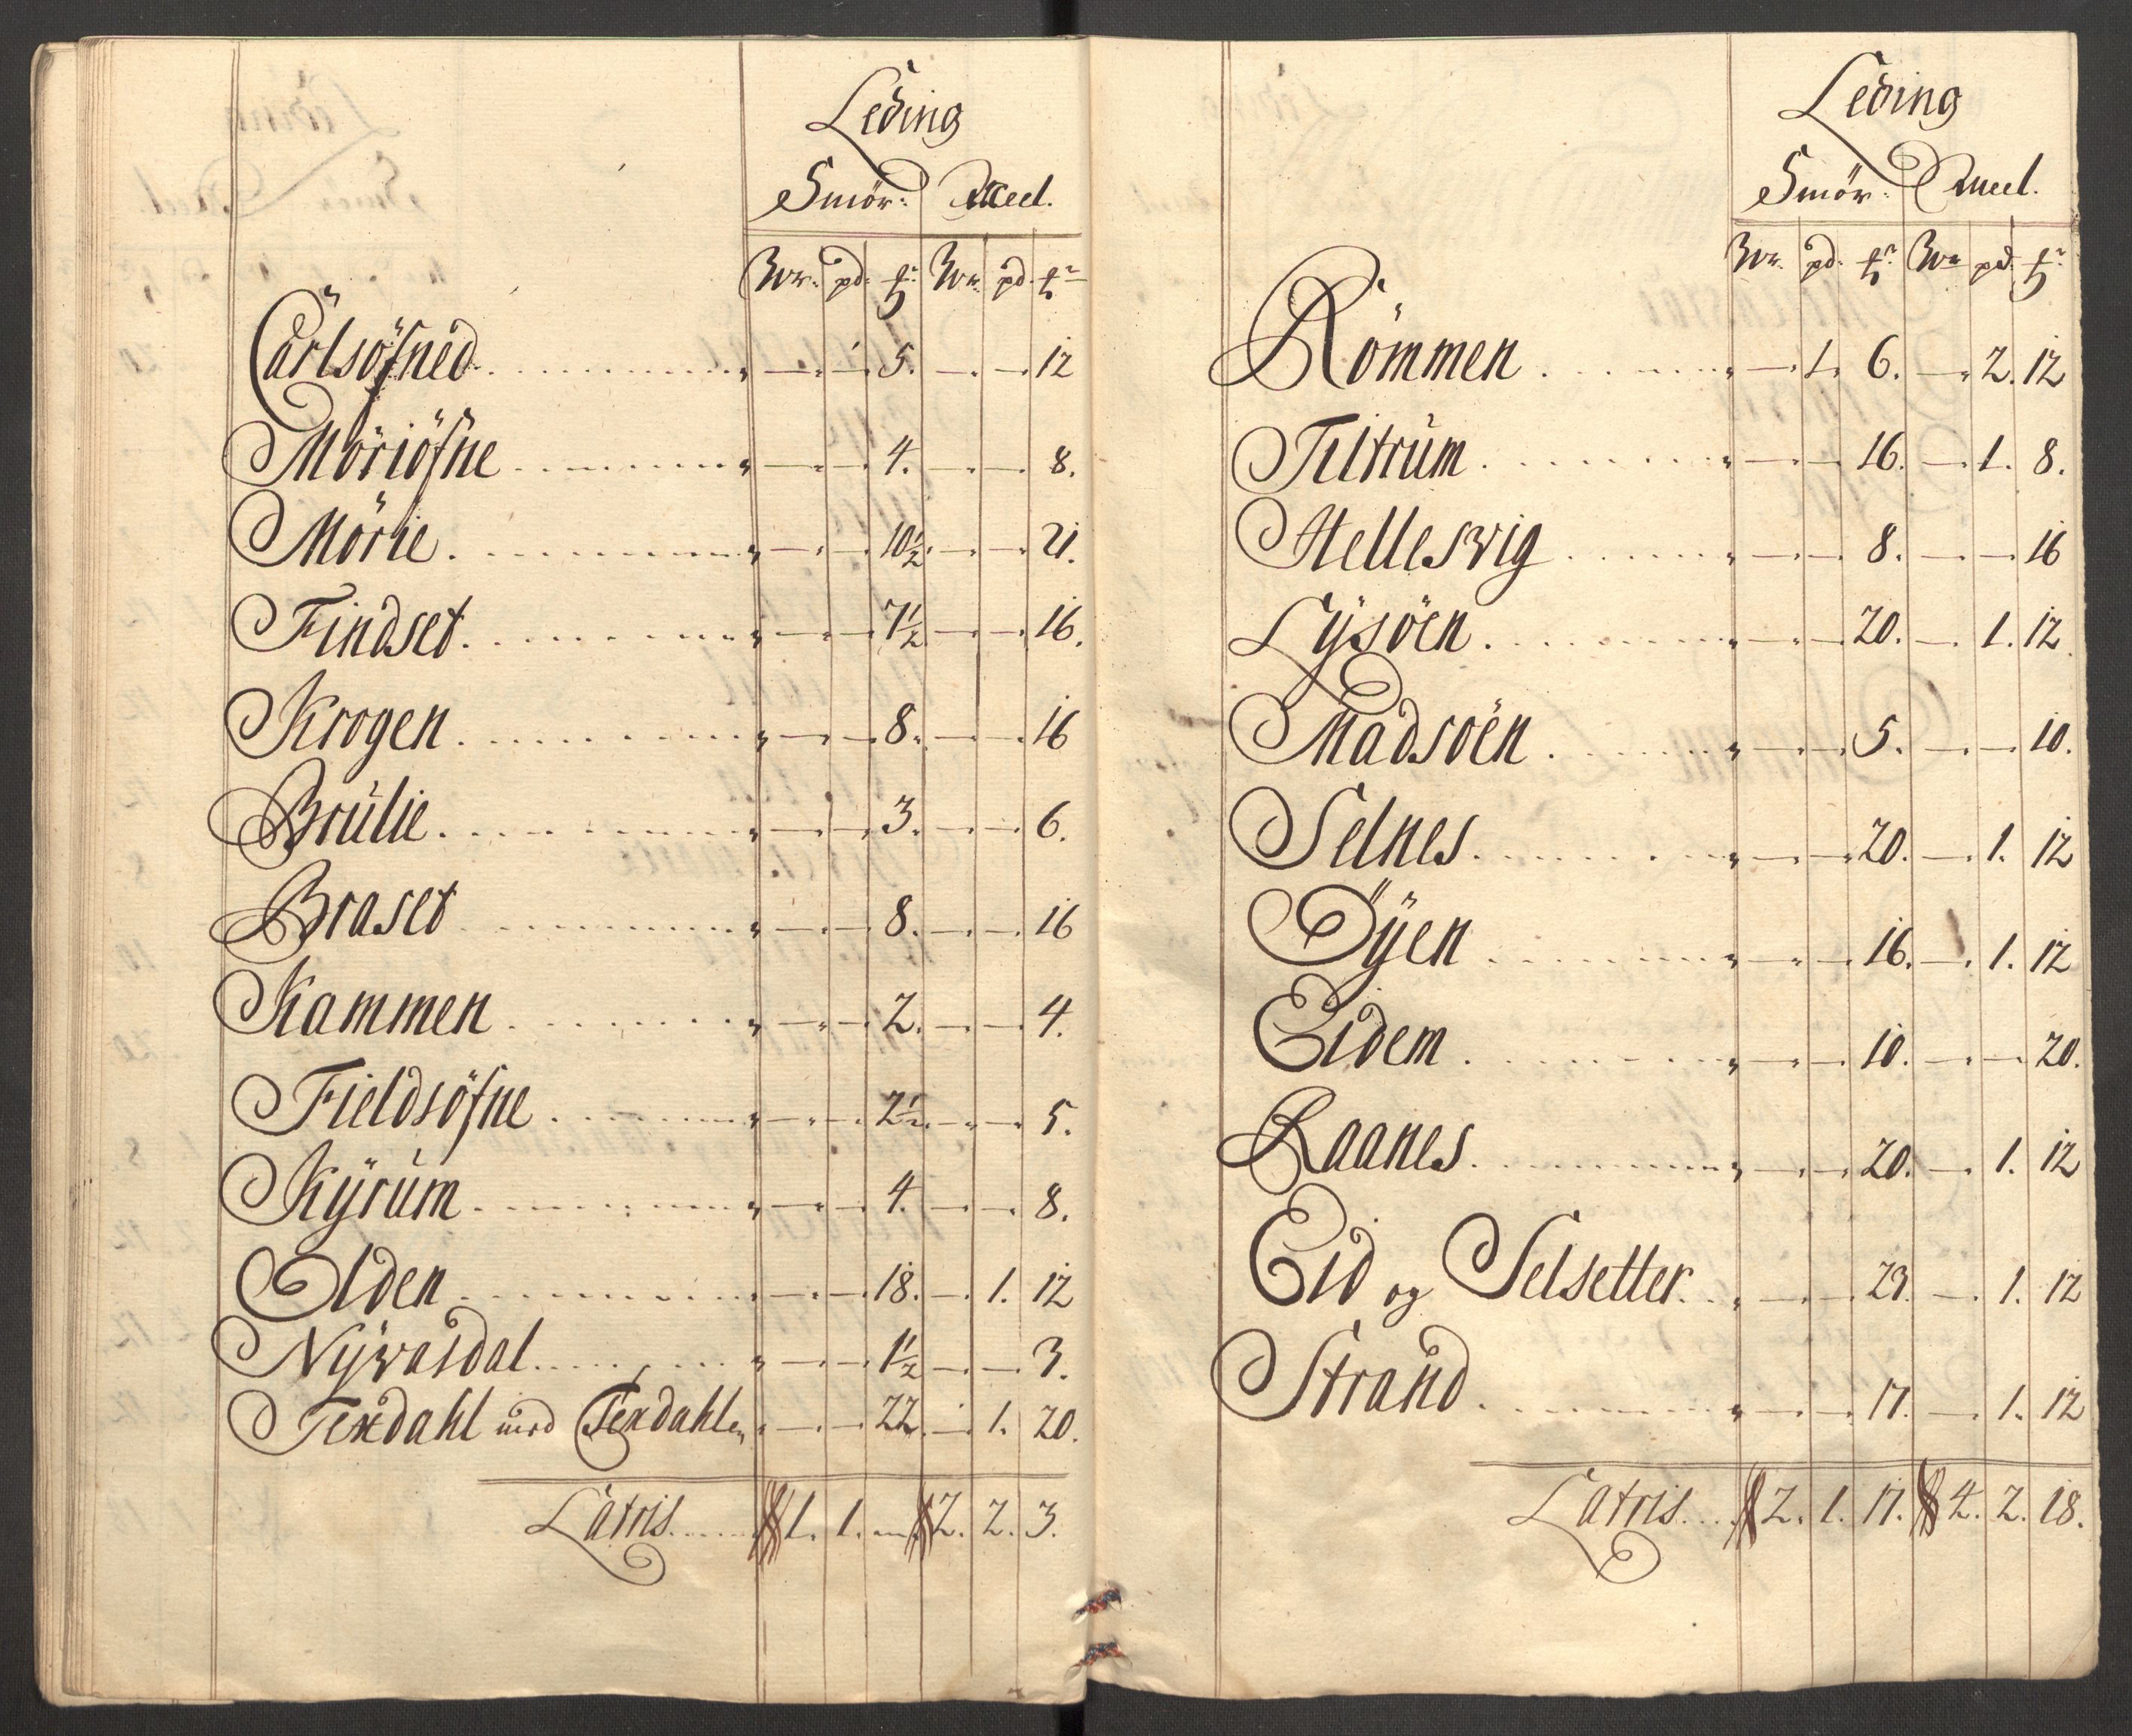 Leding
Smör: Meel.
Wr. pd. ℔r Wr. pd. ℔r
Carlsöfned . . . . . . . . . „ — . — . 5. — . — . 12
Möriöfne . . . . . . . . . „ — . — . 4. — . — . 8.
Mörie . . . . . . . . . „ — . — . 10½. — . — . 21.
Findset . . . . . . . . . „ — . — . 7½ — . — . 16.
Krogen . . . . . . . . . „ — . — . 8. — . — . 16
Brülie . . . . . . . . . „ — . — . 3. — . — . 6.
Braset . . . . . . . . . „ — . — . 8. — . — . 16
Kammen . . . . . . . . . „ — . — . 2. — . — . 4.
Fieldsöfne . . . . . . . . . „ — . — . 2½. — . — . 5.
Kÿrüm . . . . . . . . . „ — . — . 4. — . — . 8.
Olden . . . . . . . . . — . — . 18. — . 1. 12
Nÿwasdal . . . . . . . . . „ — . — . 1½ — . — . 3.
Texdahl med Texdahlen „ — . — . 22. — . 1. 20.
Latris . . . . . 1. 1. — 2. 2. 3.
Leding
Smör: Meel.
Wr. pd. ℔r Wr pd. ℔r
Römmen . . . . . . . „ — . 1. 6. — . 2. 12
Tiltrüm . . . . . . . „ — . — 16. — . 1. 8.
Helleswig . . . . . . . „ — . — . 8. — . — . 16
Lÿsöen . . . . . . . „ — . — . 20. — . 1. 12
Madsöen . . . . . . . „ — . — . 5. — . — . 10.
Selnes . . . . . . . „ — . — . 20. — . 1. 12
Öÿen . . . . . . . „ — . — . 16. — . 1. 12
Eidem . . . . . . . „ — . — . 10. — . — . 20.
Raanes . . . . . . . „ — . — . 20. — . 1. 12
Eid og Selsetter . . „ — . — . 23. — . 1. 12
Strand . . . . . . . „ — . — . 17. — . 1. 12
Latris . . . 2. 1. 17. 4. 2. 18.